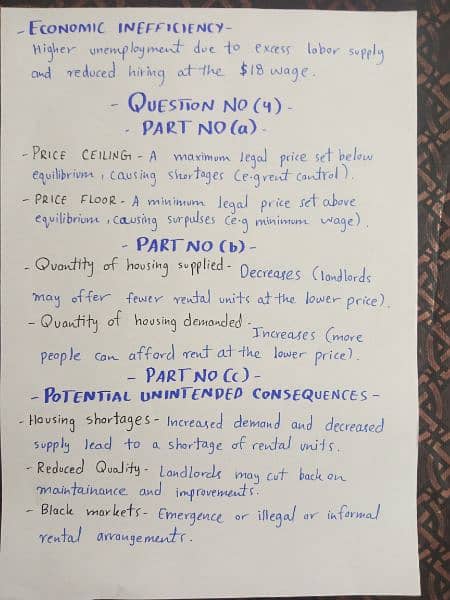 - ECONOMIC INEFFICIENCY-
Higher unemployment due to excess labor supply
and reduced hiring at the $18 wage.
- QUESTION NO (4) -
- PART NO (a) -
- PRICE CEILING - A maximum legal price set below
equilibrium, causing shortages (e.g rent control).
- PRICE FLOOR - A minimum legal price set above
equilibrium, causing surpulses (e.g minimum wage).
- PART NO (b) -
- Quantity of housing supplied - Decreases (landlords
may offer fewer rental units at the lower price).
- Quantity of housing demanded - Increases (more
people can afford rent at the lower price).
- PART NO (c) -
- POTENTIAL UNINTENDED CONSEQUENCES -
- Housing shortages - Increased demand and decreased
supply lead to a shortage of rental units.
- Reduced Quality - Landlords may cut back on
maintainance and improvements.
- Black markets - Emergence or illegal or informal
rental arrangements.